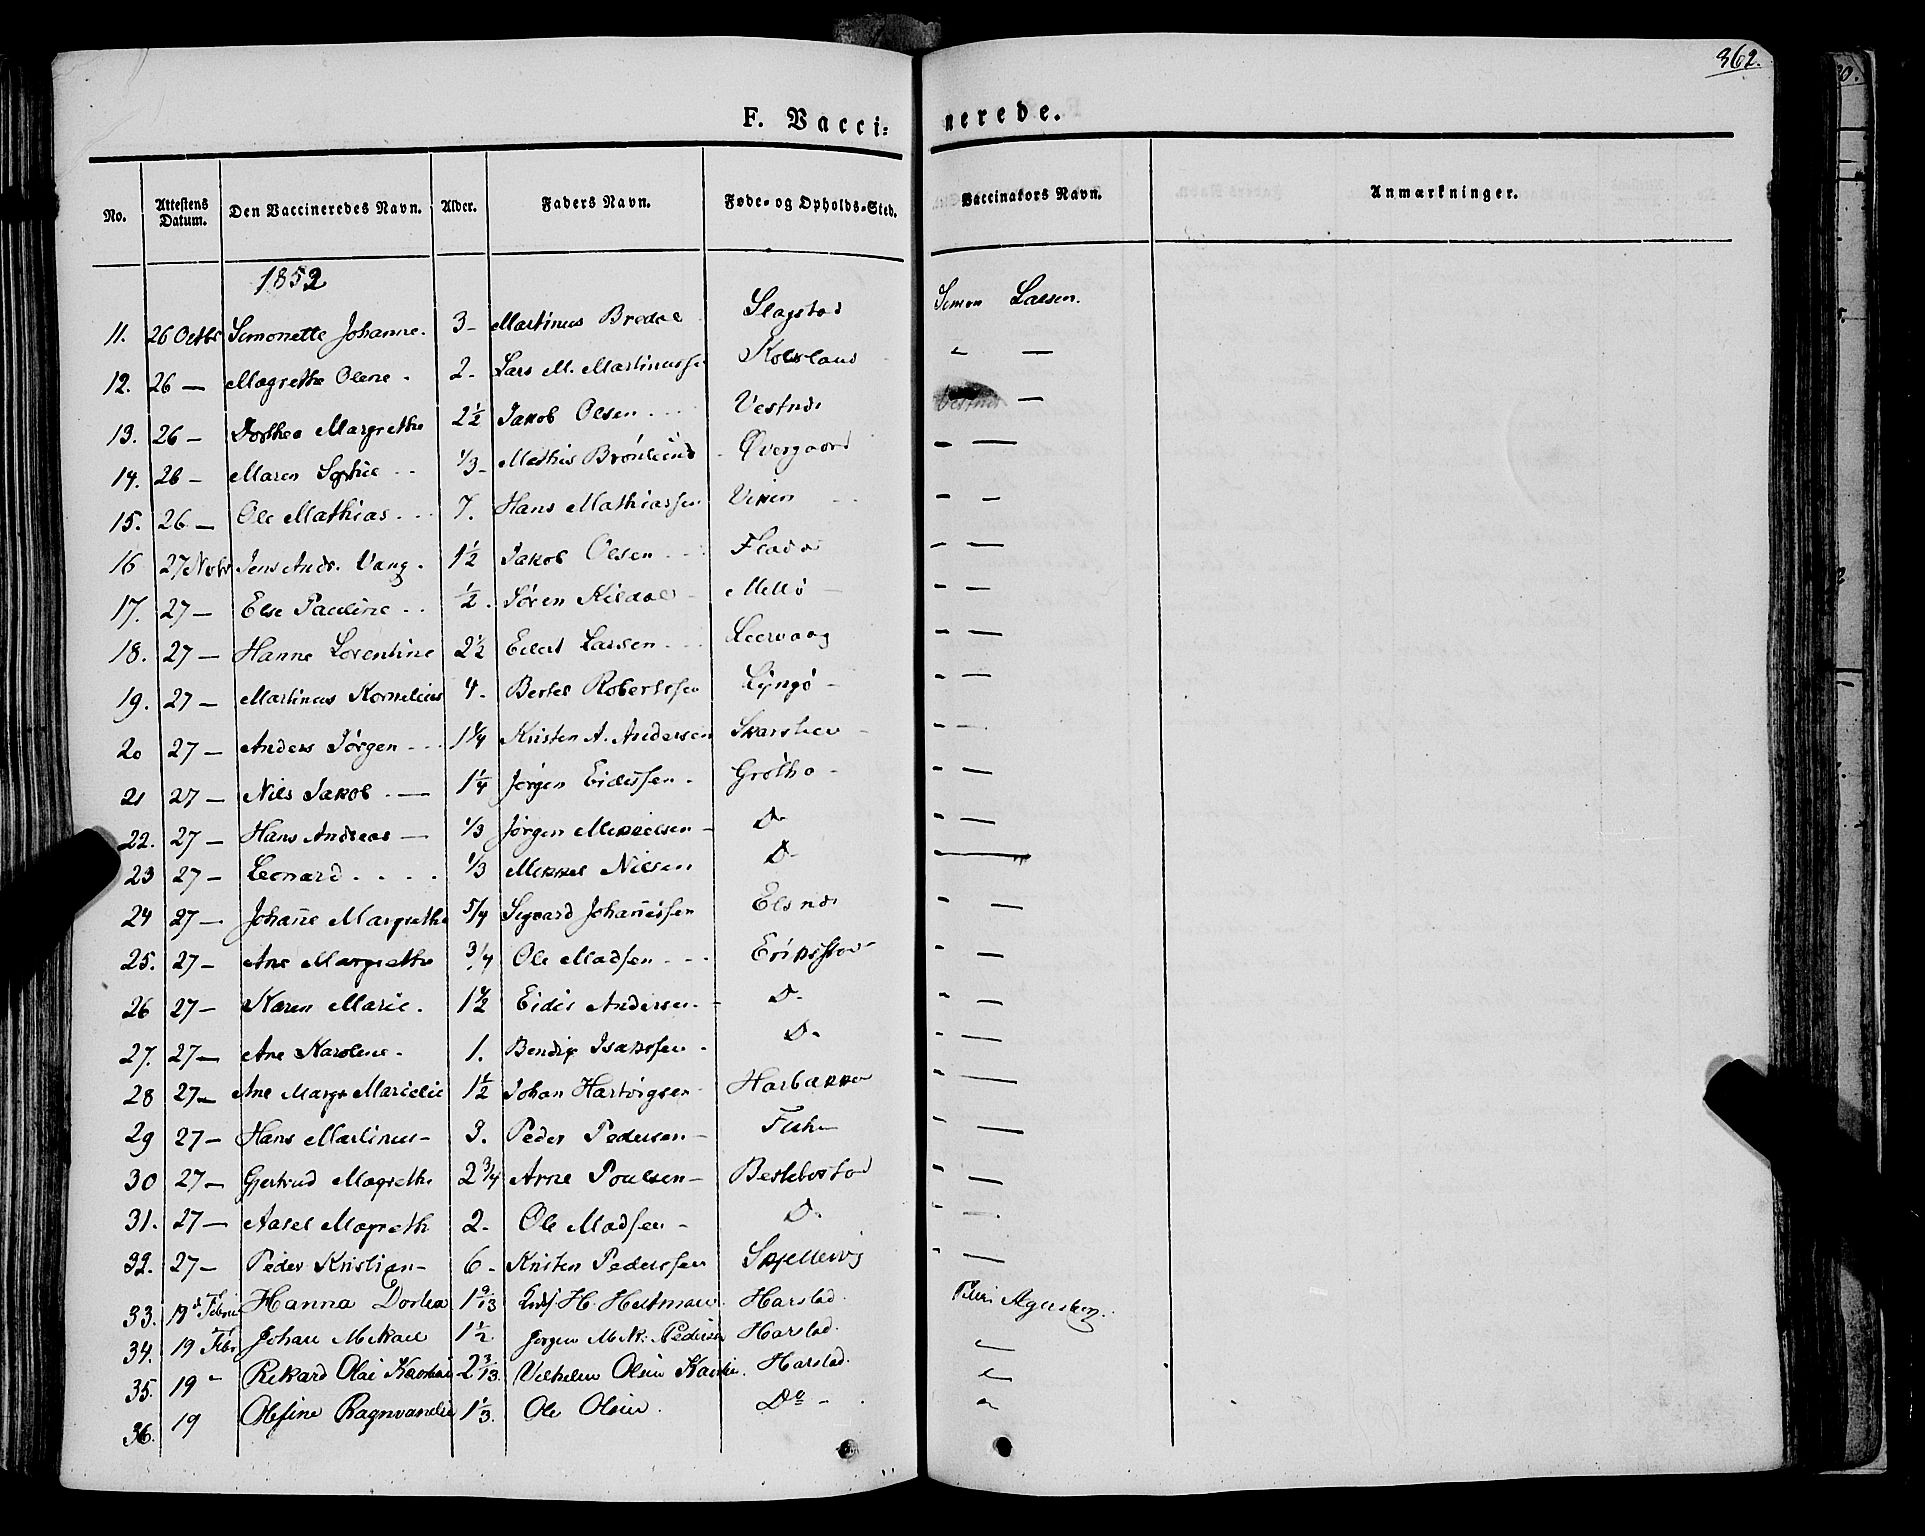 362.
F. Vacci: nerede.
No. Attestens Datum. Den Vaccineredes Navn. Alder. Faders Navn. Føde- og Opholds-Sted. Vaccinators Navn. Anmærkninger.
1852
11. 26 Octbr Simonette Johanne. 3- Martinus Bredal Slagstad Simon Larsen.
12. 26 — Magrethe Olene - 2- Lars M. Martinussen " —
13. 26 — Dorthea Margrethe 2½ Jakob Olsen - - - Vestnes —
14. 26 — Maren Sophie - - 1/3- Mathis Brönlund - Øvergaard - —
15. 26 — Ole Mathias - - 7. Hans Mathiassen Viken - - - —
16 27 Nobr Jens Andr. Vang - 1½ Jakob Olsen - - - —
17. 27 — Else Pauline - - ½. Sören Kildal - Mellö - - —
18. 27 — Hanne Lorentine 2½ Edert Larsen - - Leervaag - —
19. 27 — Martinus Kornelius 4- Bertel Robertssen Lyngö - - —
20 27 — Anders Jörgen - - - 1¼ Kristen A. Andersen - - —
21 27 — Nils Jakob - — 1¼ Jörgen Eidissen - Grötho - - —
22. 27 — Hans Andreas — 1/3 Jörgen Mikkelsen - D- - —
23 27 — Leonard - - - - 1/3 Mikkel Nilsen D- - —
24 27 — Johañe Margrethe 5/4 Sigvard Johañessen Elsnes - —
25. 27 — Ane Margrethe 3/4 Ole Madsen - - - Eriksstad - —
26 27 — Karen Marie. 1½ Eidis Andersen - - D- - —
27. 27 — Ane Karoline - 1. Bendix Isaksen - D- - —
28 27 — Ane Margr Marselie 1½ Johan Hartvigsen - Harbakken - —
29 27 — Hans Martinus - 3. Peder Pedersen - - —
30 27 — Gjertrud Magrethe 2¾ Arne Poulsen - Beslebostad - —
31. 27 — Aasel Magreth 2- Ole Madsen - D- - —
32. 27 — Peder Kristian - 6- Kristen Pederssen Skjellevig - —
33. 19d Februar Hanna Dorthea 1 9/13 H. Harstad.
34. 19 Febr Johan Mikael 1½ Jörgen Mik. Pedersen Harstad "
35. 19 " Rikard Olai 2 3/13. Vilhelm Olsen Harstad. "
36. 19 Olefine Ragnvandie 1 1/3. Ole Olsen. Do - . "